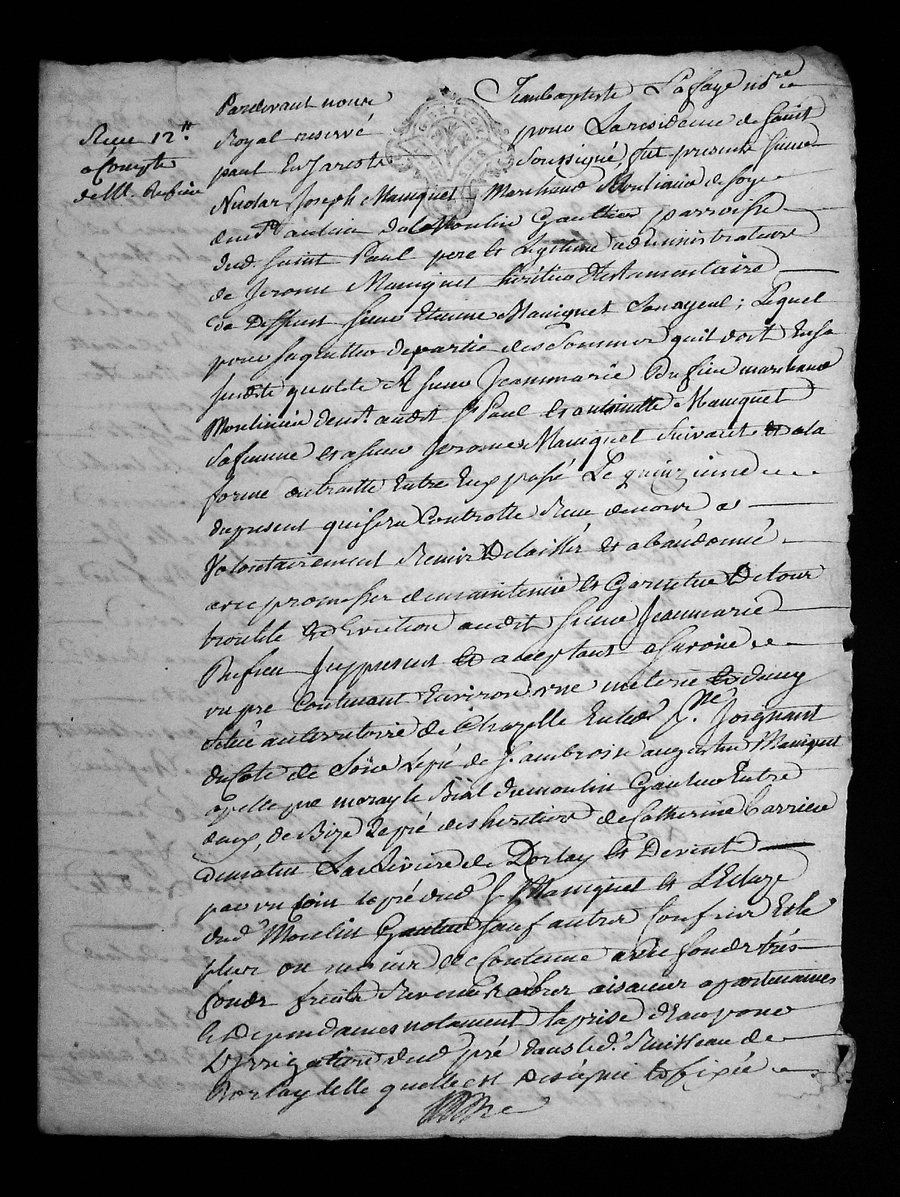 Reçu 12ᵗᵗ
a Compte
de Mr. Rufieu
Pardevant nous Jean baptiste Laffaye nore
Royal reservé pour La residence de Saint
paul En Jareste Soussigné, fut présent sieur
Nicolas Joseph Maniquet Marchand Moulinier de soye
demt au lieu du Moulin Gauttier parroisse
dud. Saint Paul pere et Legitime administrateur
de Jerome Maniquet heritier testamentaire
de Deffunt sieur Etienne Maniquet Son ayeul; Lequel
pour Saquitter de partie des Sommes quil doit En sa
susdite qualité A sieur Jean marie Rufieu marchand
Moulinier demt. audit St Paul et antoinette Maniquet
Sa femme et a sieur Jerome Maniquet suivant et a la
forme du traitté Entre Eux passé Le quinzieme
du present qui sera Controllé de
Volontairement Remis Delaissé et abandonné
avec promesse de maintenir et Garentir De tour
trouble et Eviction audit sieur Jean marie
Rufieu Icy present et acceptant a Savoir
un pré Contenant Environ une meterie et demy
Situé au territoire de Chazelle Joignant
du Coté de Soir Le pré de Sr. ambroise augustin Maniquet
le Bial du moulin Gautier Entre
deux, de Bize Le pré des heritiers de Catherine Carriere
de matin La Riviere de Dorlay et De vent
par un Coin Le pré dud. Sr. Maniquet et L'Ecluze
dud. Moulin Gautier sauf autres Confins Et le
plus ou moins de Contenue avec fonds tres
fonds fruits Revenus arbres aisances apartenances
et Dependances notament la prise d'Eau pour
L'irrigation dud. pré dans led. Ruisseau de
Dorlay telle quelle est et fixée